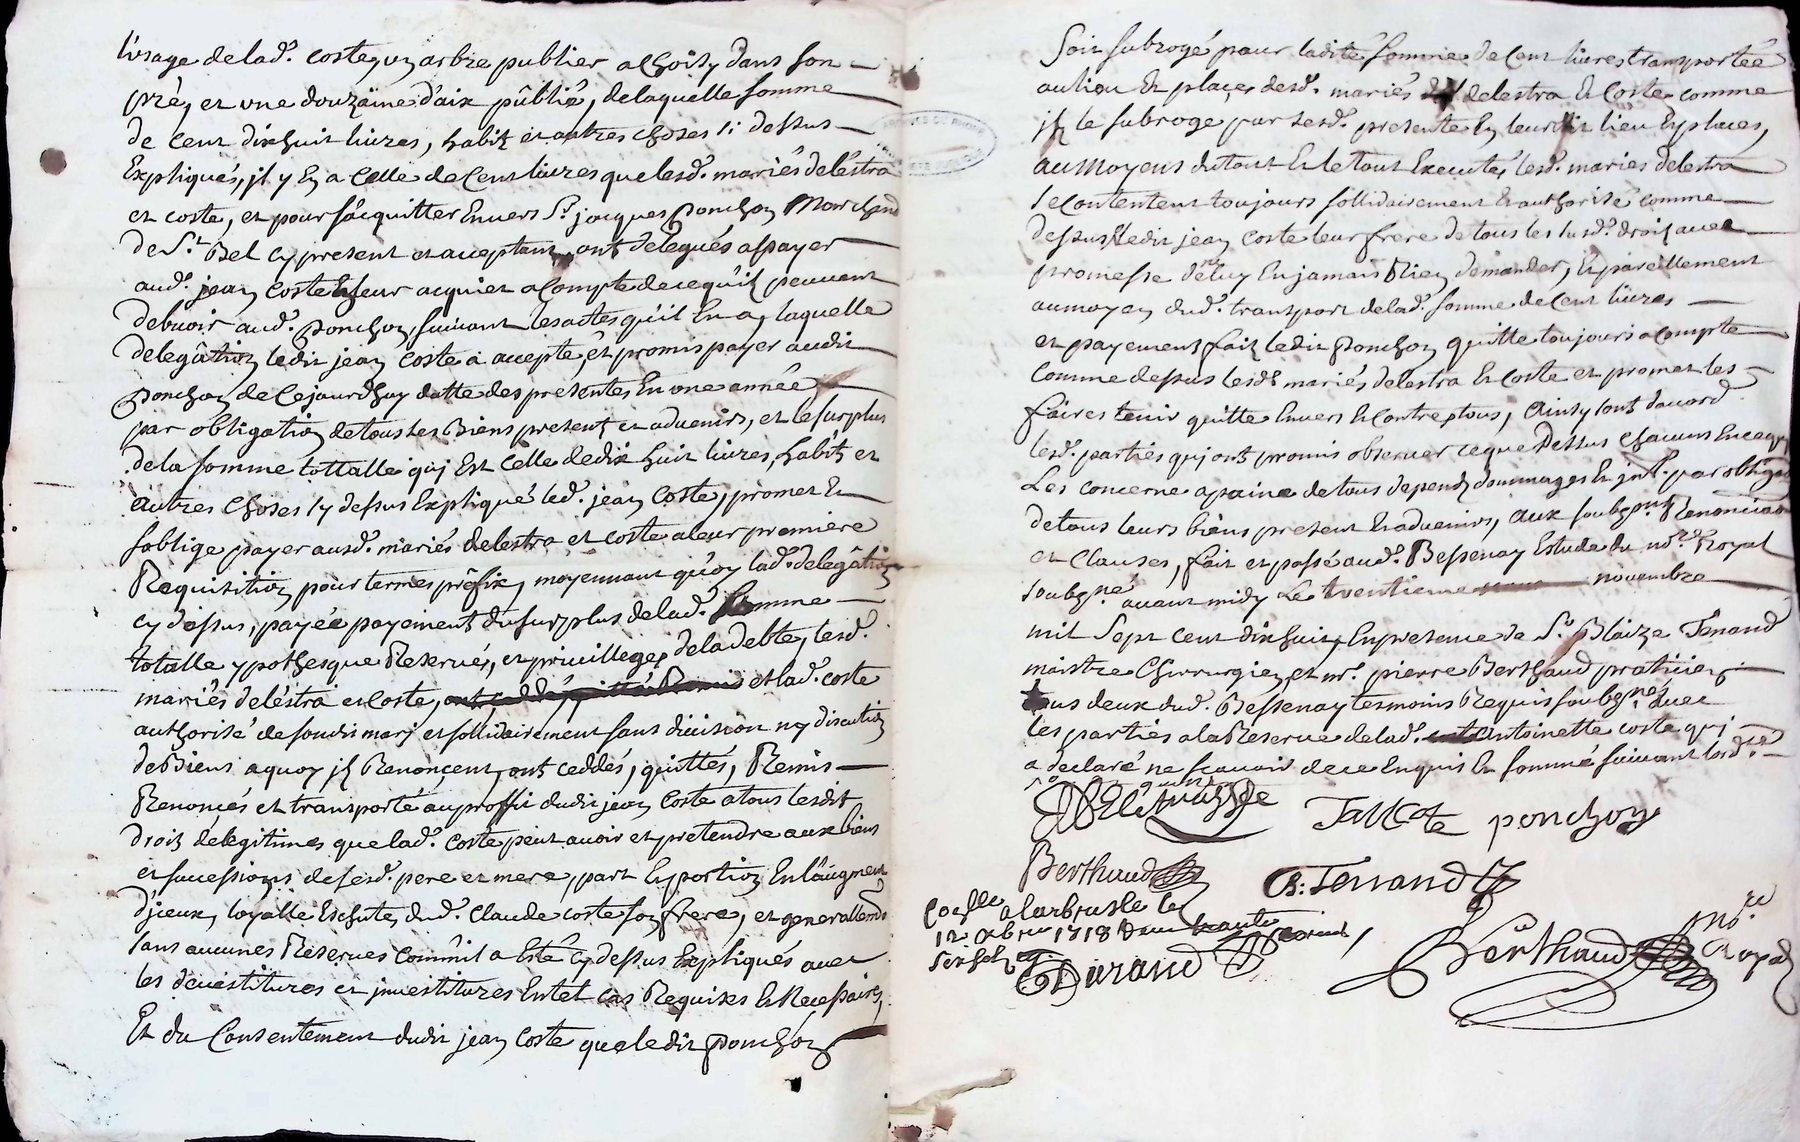 l'usage de lad. coste, un arbre publier a choisy dans son
pré, et une douzaine d'aix publié, de laquelle somme
de cent dixhuit livres, habits et autres choses si dessus
Expliqués, jl y En a Celle de Cent livres que lesd. mariés delestra
et coste, et pour s'acquitter Envers Sr. jacques ponchon Marchand
de St Bel cy present et aceptant, ont delegués a payer
aud. jean coste a compte de ce qu'ils peuvent
debvoir aud. ponchon, suivant les actes qu'il En a, laquelle
delegâtion ledit jean Coste a accepté, et promis payer audit
ponchon de Cejourd'huy datte des presentes En une année
par obligation de tous ses Biens present et advenirs, et le surplus
de la somme tottalle quj Est Celle de dix huit livres, habits et
autres Choses sy dessus Expliqué led. jean Coste, promet Et
s'oblige payer ausd. mariés delestra et coste a leur premiere
Requisition pour termes préfix, moyennant quoy lad. delegâtion
cy d'essus, payée payement du surplus de lad. somme
totalle ypothesque Reservés, et privilleges de la debte, lesd.
mariés deléstra et Coste, et lad. coste
authorisé de sondit marj et sollidairement sans division ny discution
de Biens a quoy jls Renonçent, ont ceddés, quittés, Remis
Renoncés et transporté au proffit dudit jean Coste a tous lesdit
droits délegitimes que lad. Coste peut avoir et pretendre aux biens
et successions de sesd. pere et mere, part Et portion En l'augment
d'jceux, loyalle Eschute, dud. Claude coste son frere, et generallement
sans aucunes Reserves Comm'il a Esté Cy dessus Expliqués avec
les devestitures et jnvestitures En tel cas Requises Et Necessaires,
Et du Consentement dudit jean Coste que ledit ponchon
Soit subrogé pour ladite somme de Cent livres transportée
au lieu Et places desd. mariés delestra Et Coste comme
jl le subroge par sesd. presente En leurdit lieu Et places,
au Moyens du tout Et le tout Executés, lesd. mariés delestra
se contentent toujours sollidairement Et authorisé comme
dessus ledit jean Coste leur frere de tous les susd. droits avec
promesse de luy En jamais Rien demander, Et pareillement
au moyen dud. transport de lad. somme de Cent livres
et payement fait ledit ponchon quitte toujours a compte
Comme dessus lesd. mariés delestra Et Coste et promet les
faires tenir quitte Envers Et Contre tous, Ainsy sont d'acord
lesd. parties quj ont promis observer ce que Dessus Chacuns En ce quj
Les concerne a peine de tous depends dommages Et jnts. par obligation
de tous leurs biens present Et advenirs, aux soubzons Renonciation
et Clauses, fait et passé aud. Bessenay Estude du nore. Royal
soubzné avant midy Le trentieme novembre
mil Sept Cent dixhuit, En presence de Sr. Blaize Ferrand
maistre Chirurgien, et mr. pierre Berthaud praticien
tous deux dud. Bessenay tesmoins Requis soubznés avec
les parties a la Reserve de lad. antoinette coste quj
a declaré ne sçavoir de ce Enquis Et sommé suivant lord.ce
J Coste ponchon
Berthaud B: Ferrand
Coelle a larbresle le
12e Xbre 1718
Durand Berthaud nore Royal